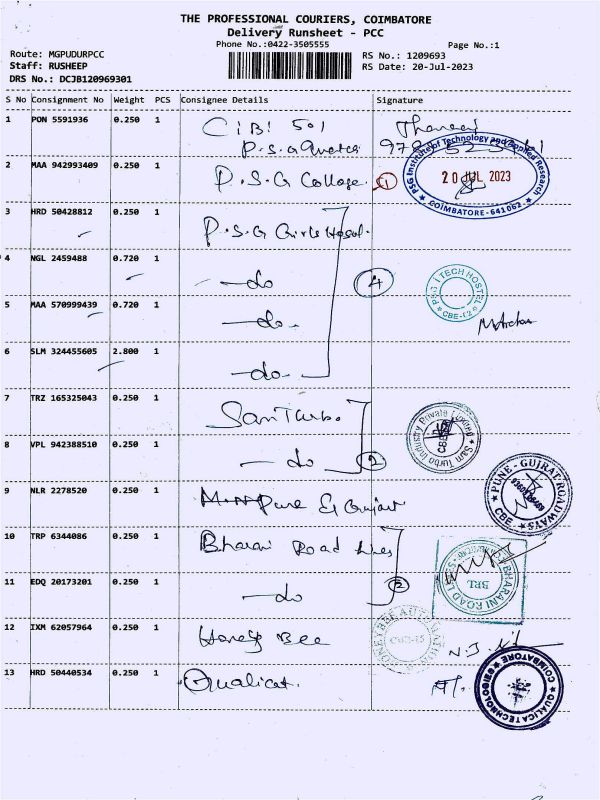 THE PROFESSIONAL COURIERS, COIMBATORE
Delivery Runsheet - PCC
Phone No.:0422-3505555 Page No.:1
Route: MGPUDURPCC RS No.: 1209693
Staff: RUSHEEP RS Date: 20-Jul-2023
DRS No.: DCJB120969301
S No Consignment No Weight PCS Consignee Details Signature
1 PON 5591936 0.250 1 CIBI 501
P.S.G
2 MAA 942993409 0.250 1 P.S.G College 1
PSG Institute of Technology and Applied Research
20 JUL 2023
COIMBATORE-641062
3 HRD 50428812 0.250 1 P.S.G Girls Hostel.
4 NGL 2459488 0.720 1 -do 4
PSG ITECH HOSTEL
CBE-62
5 MAA 570999439 0.720 1 -do-
6 SLM 324455605 2.800 1 -do-
7 TRZ 165325043 0.250 1 San Turbo.
Turbo Industry Private Limited
CBE
8 VPL 942388510 0.250 1 -do 2
9 NLR 2278520 0.250 1 Pune & Gujarat
PUNE - GUJRAT ROADWAYS
CBE
10 TRP 6344086 0.250 1 Bharani Road Lines
BHARANI ROAD LINES
BRL
11 EDQ 20173201 0.250 1 -do 2
12 IXM 62057964 0.250 1 Honey Bee
13 HRD 50440534 0.250 1 Qualicat.
QUALICA TECHNOLOGIES
COIMBATORE